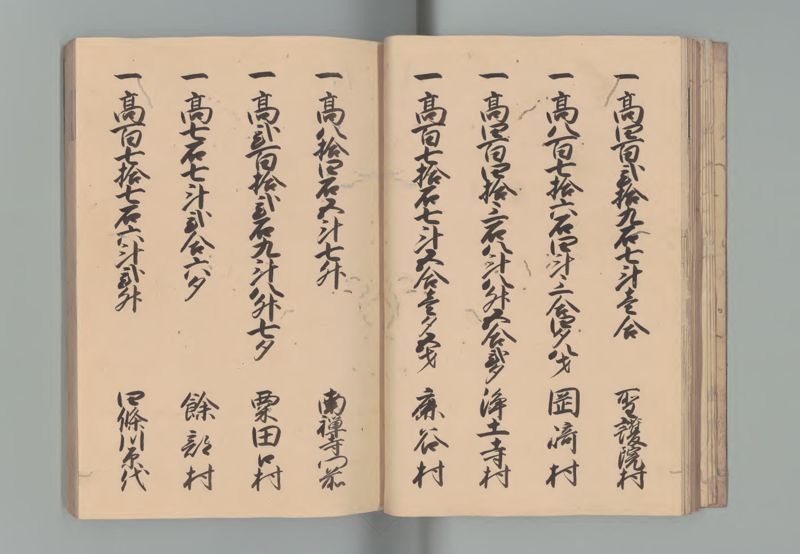 一高四百弐拾九石七斗壱合 聖護院村
一高八百七拾六石四斗三合四夕八才 岡崎村
一高四百四拾三石八斗八升五合弐夕 浄土寺村
一高百七拾石七斗五合壱夕五才 鹿谷村
一高八拾四石五斗七升 南禅寺門前
一高弐百拾弐石九斗八升七夕 粟田口村
一高七石七斗弐合六夕 餘部村
一高百七拾七石六斗弐升 四條川原代